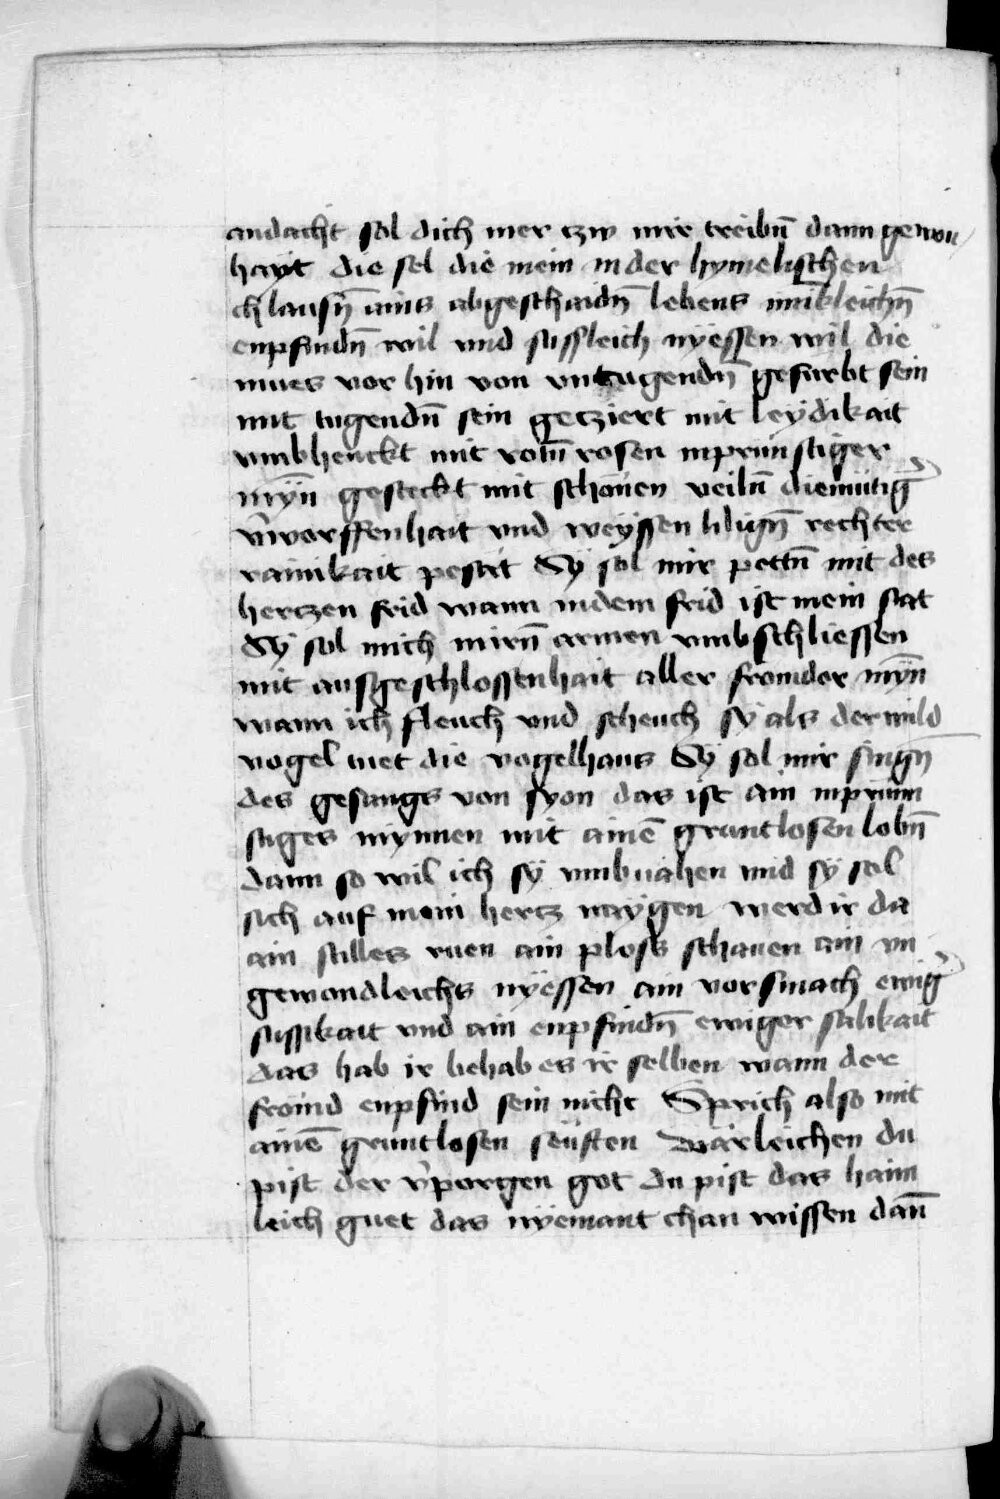 andacht sol dich mer czw mir treibn̄ dann gewon
hayt die sel die mein in der hymelischen
chlausn̄ ains abgeschaidn̄ lebens inikleichn̄
enpfindn̄ wil vnd sussleich nÿessen wil die
mues vor hin von vntugendn̄ gesúrbt sein
mit tugendn̄ sein gecziert mit leydikait
vmbhenckt mit rotn̄ rosen inprünstiger
mÿn̄ gesteckt mit schönen veiln̄ diemütig̉
v̉worffenhait vnd weÿssen lilign̄ rechter
rainikait pestrt Sÿ sol mir pettn̄ mit des
hertzen frid wann in dem frid ist mein stat
Sÿ sol mich mit irn̄ armen vmbschliessen
mit aufgeschlossenhait aller fromder mÿn̄
wann ich fleuch vnd scheuch sÿ als der wild
vogel tuet die vogelhaus Sÿ sol mir singn̄
des gesangs von syon das ist ain inprünn
stiges mynnen mit ainē gruntlosen lobn̄
dann so wil ich sÿ vmbuahen vnd sÿ sol
sich auf mein hertz naygen werd ir da
ain stilles ruen ain ploss schauen ain vn
gewondleichs nÿessen ain vorsmach ewig̉
sussikait vnd ain enpfindn̄ ewiger salikait
das hab ir behab es ir selben wann der
fröind enpfind sein nicht Sprich also mit
ainē gruntlosen seüften Wärleichen du
pist der v̉porgen got du pist das haim
leich guet das nÿemant chan wissen dan̄